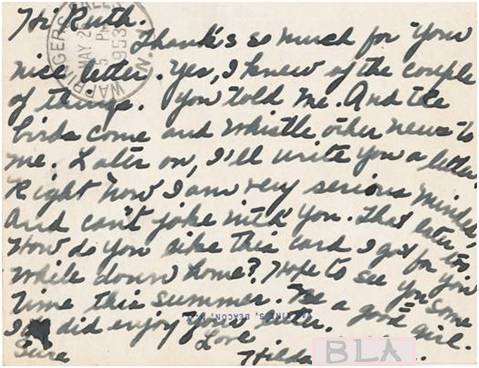 Hi Ruth.
Thanks so much for your
nice letter. Yes, I knew of the couple
of things. You told me. And the
birds come and whistle other news to
me. Later on, I'll write you a letter.
Right now I am very serious minded,
And can't joke with you. That later, too
How do you like this card I got for you
while down home? Hope to see you some
time this summer. Be a good girl.
I did enjoy your letter.
Sure Love
Hilda
BLA
WAPPINGERS
MAY 2
PM
1953
N.Y.
S, BEACON, N.Y.